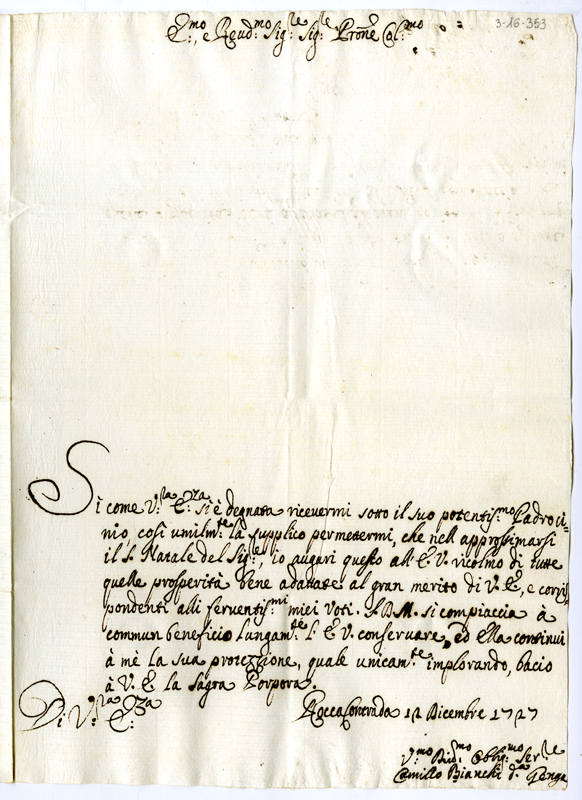 3-16-353
E.mo, e Reud:mo Sig:re Sig:re Prone Col:mo
Si come V:ra E:za si è degnata ricevermi sotto il suo potentis:mo Padroci=
nio, così umilm:te la supplico permettermi, che nell approssimarsi
il S. Natale del Sig:re, io auguri questo all E. V. ricolmo di tutte
quelle prosperità bene adattate al gran merito di V. E., e corris
pondenti alli ferventis:mi miei voti. S. B. M. si compiaccia à
commun beneficio lungam:te l. E. V. conservare, ed Ella continui
à mè la sua protezzione, quale unicam:te implorando, bacio
à V. E. la sagra Porpora.
Di V:ra E:za
RoccaContrada 12 Dicembre 1727
V:mo Div:mo Oblig:mo Ser:re
Camillo Bianchi d:a Genga